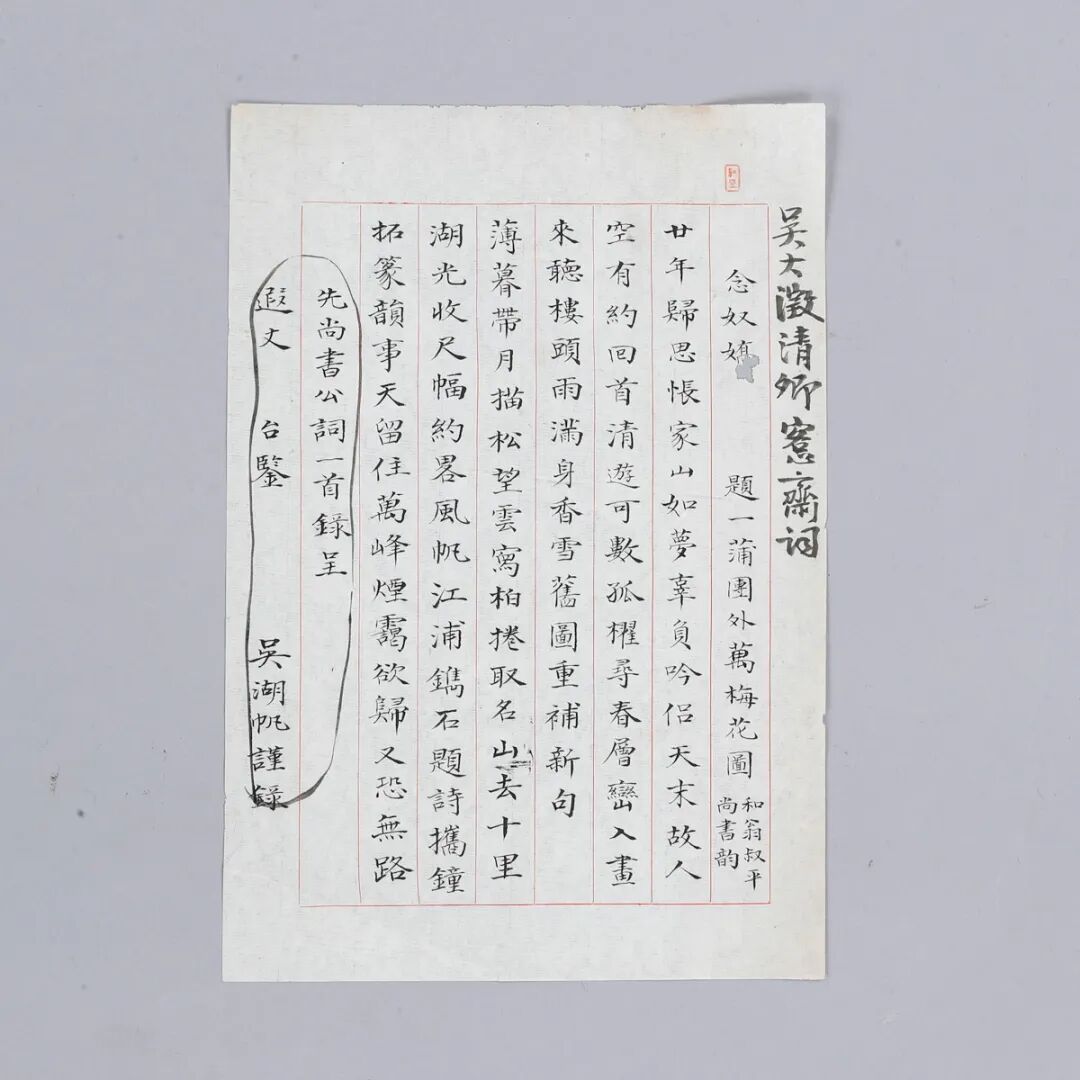 吴大澂清卿愙齋词
念奴嬌　題一蒲團外萬梅花圖　和翁叔平尚書韵
廿年歸思悵家山如夢辜負吟侣天末故人
空有約回首清遊可數孤櫂尋春層巒入畫
來聽樓頭雨滿身香雪舊圖重補新句
薄暮帶月描松望雲寫柏捲取名山去十里
湖光收尺幅約畧風帆江浦鐫石題詩攜鐘
拓篆韻事天留住萬峰煙靄欲歸又恐無路
先尚書公詞一首録呈
遐丈　台鑒　吳湖帆謹録